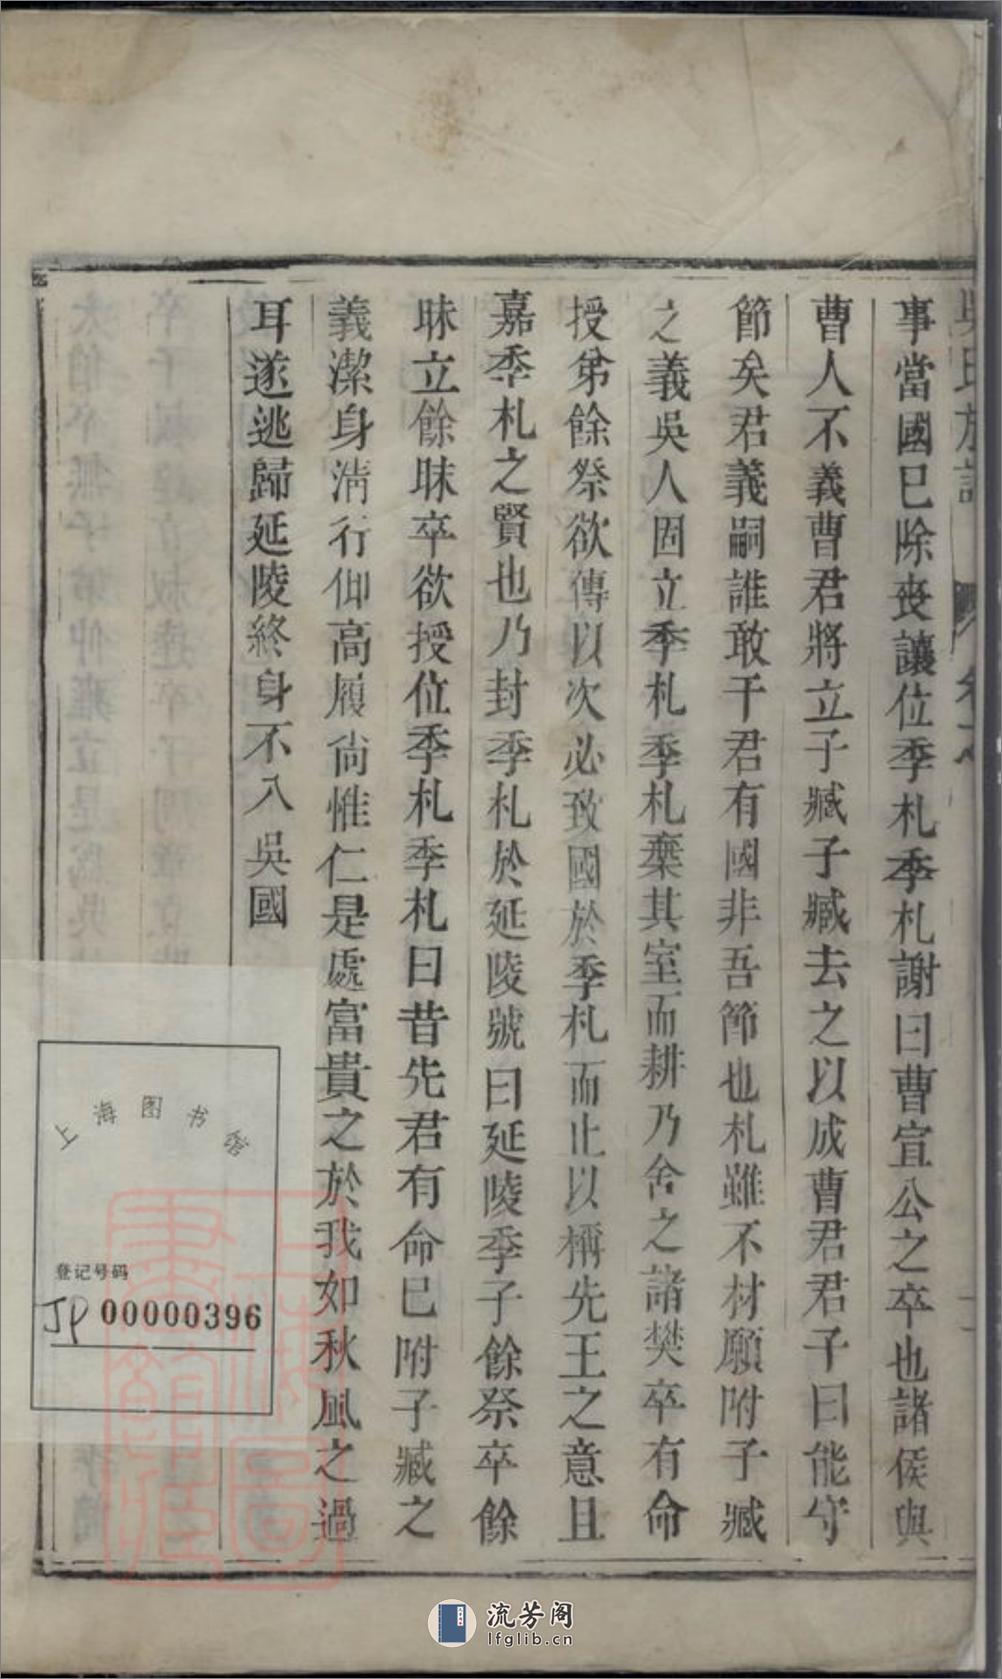 吳氏族譜
事當國已除喪讓位季札季札謝曰曹宣公之卒也諸侯與
曹人不義曹君將立子臧子臧去之以成曹君君子曰能守
節矣君義嗣誰敢干君有國非吾節也札雖不材願附子臧
之義吳人固立季札季札棄其室而耕乃舍之諸樊卒有命
授弟餘祭欲傳以次必致國於季札而止以稱先王之意且
嘉季札之賢也乃封季札於延陵號曰延陵季子餘祭卒餘
眛立餘眛卒欲授位季札季札曰昔先君有命已附子臧之
義潔身清行仰高履尚惟仁是處富貴之於我如秋風之過
耳遂逃歸延陵終身不入吳國
上海图书馆
登记号码
JP 00000396
流芳阁
lfglib.cn